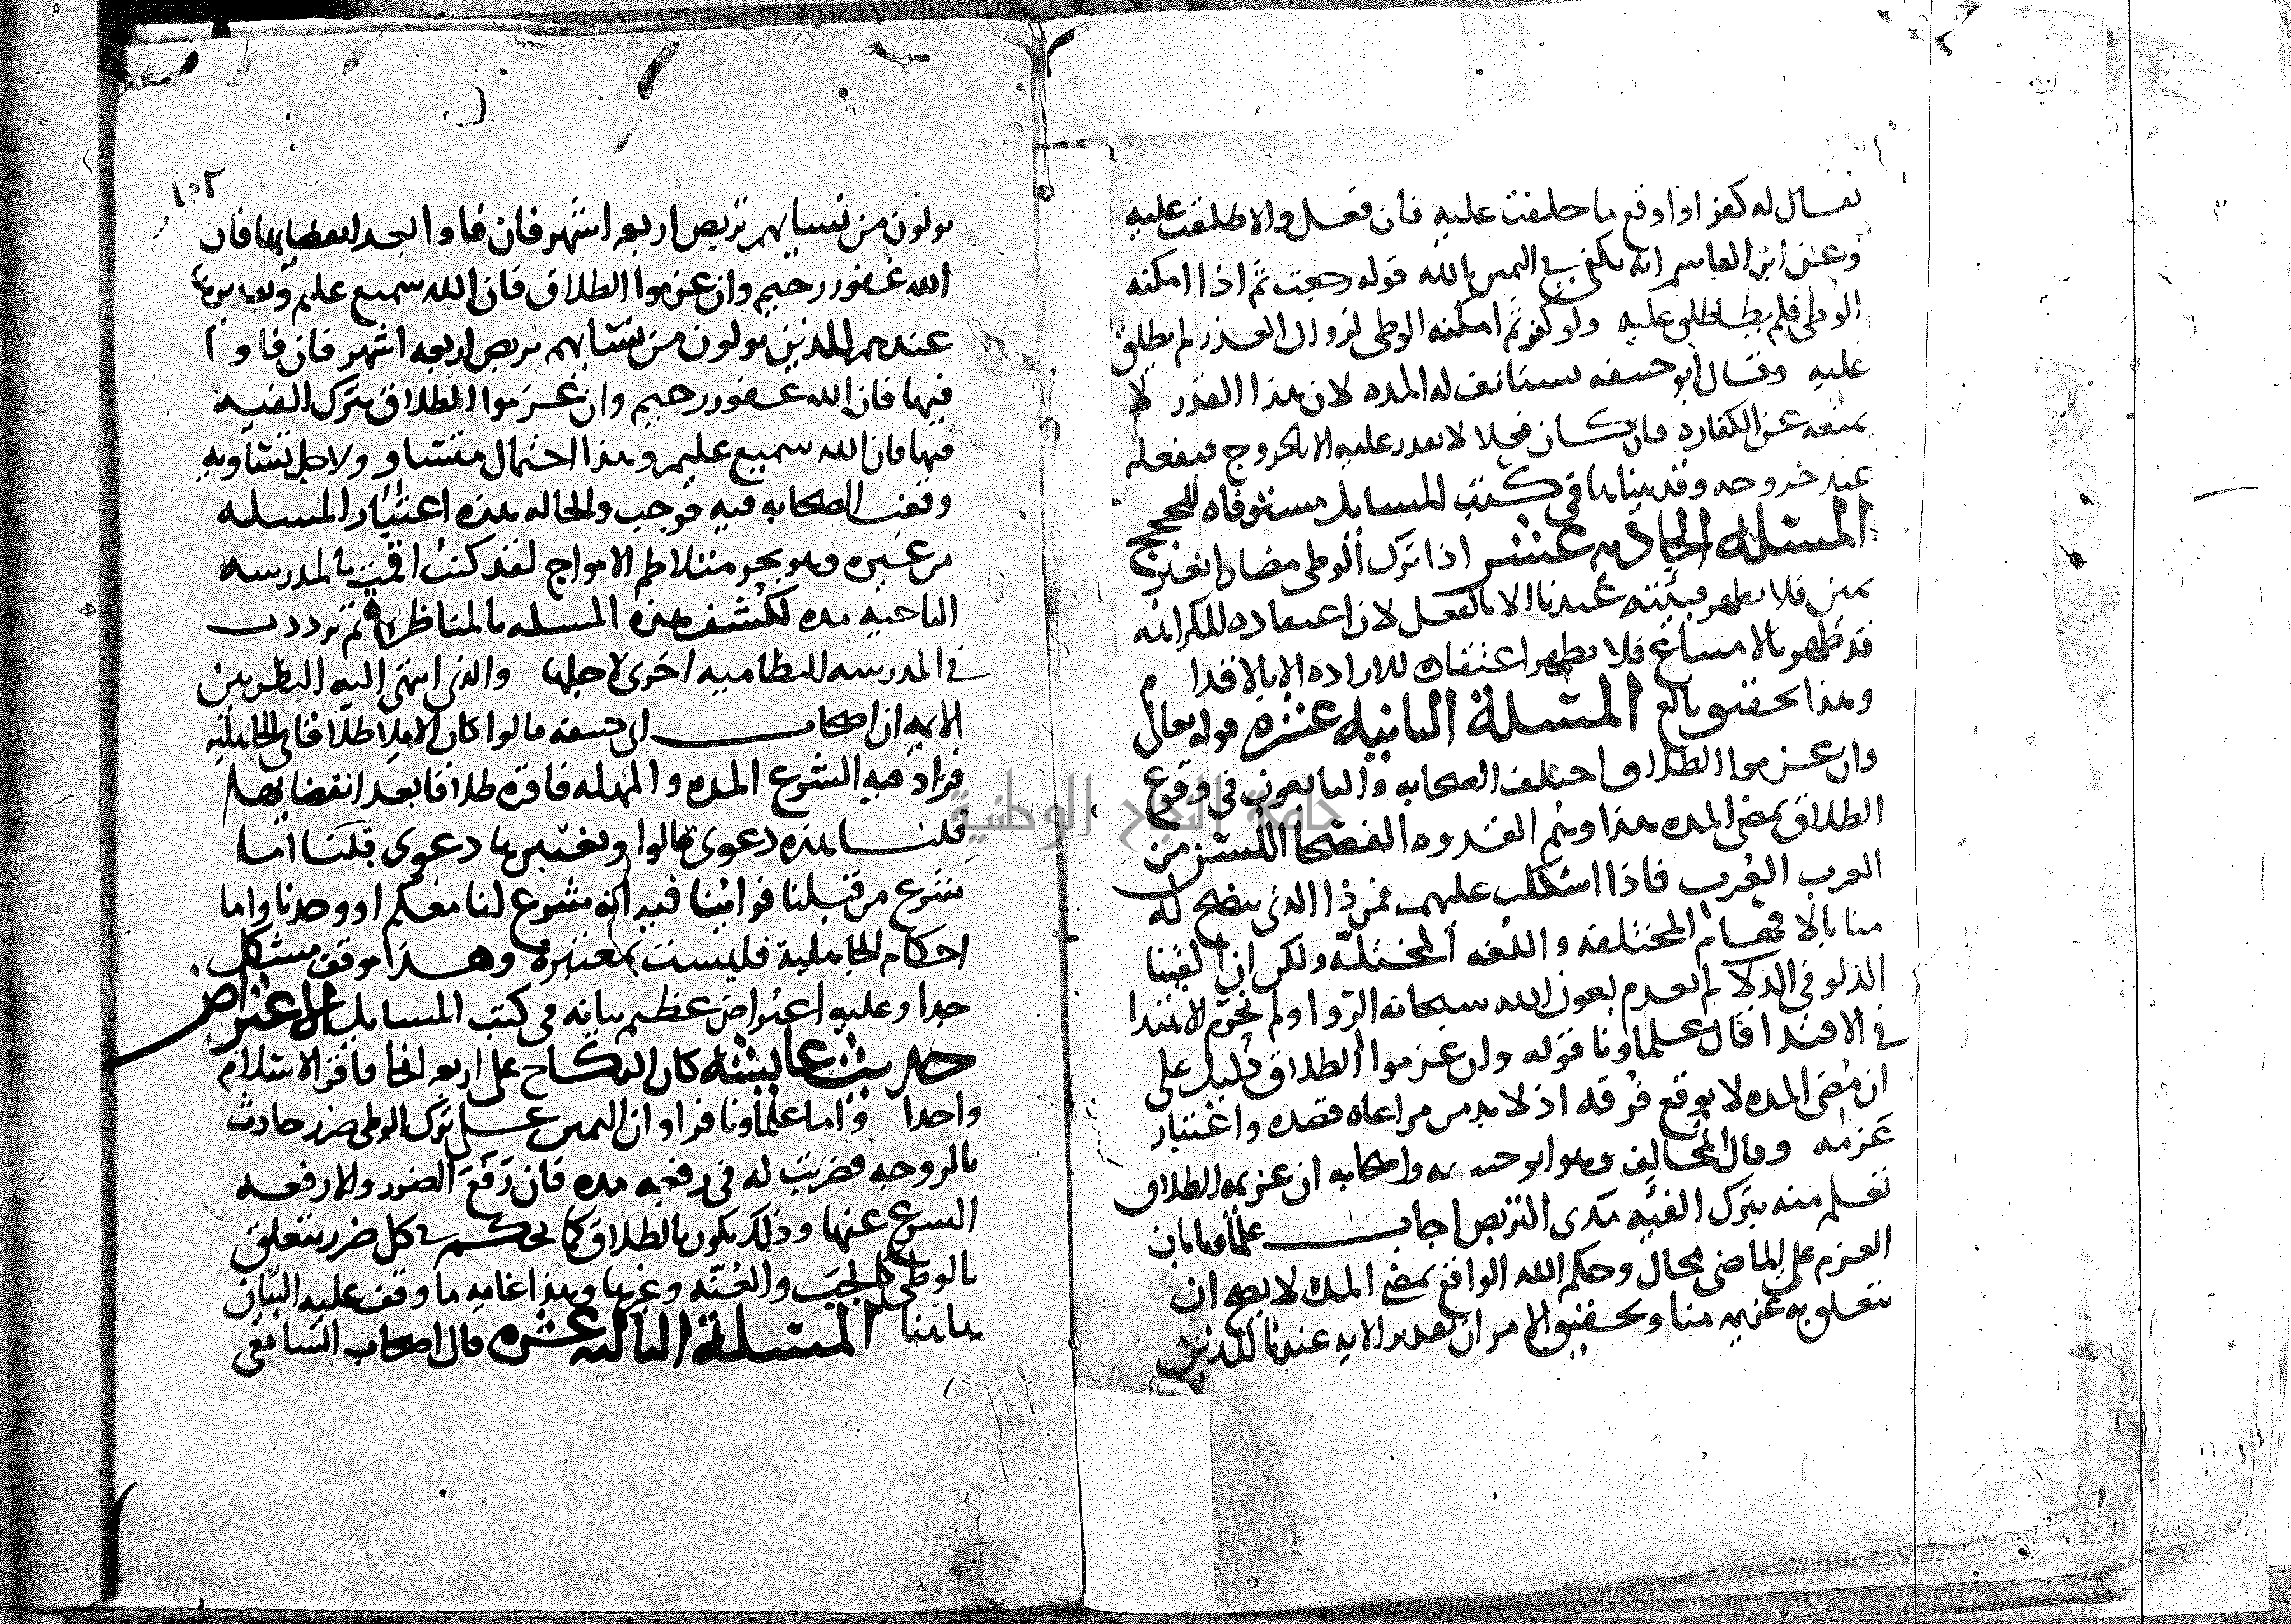 فقال له كفر اذا وقع ما حلفت عليه فان فعل والا طلقت عليه
وعن ابن القاسم انه يكفي في اليمين بالله قوله رجعت ثم اذا امكنه
الوطي فلم يطا طلق عليه ولو كفر ثم امكنه الوطي لزوال العذر لم يطلق
عليه وقال ابو حنيفه تستانف له المده لان هذا العذر لا
يمنعه عن الكفاره فان كان فعلا لا يقدر عليه الا بالخروج فيفعله
عند خروجه وقد بيناها في كتب المسايل مستوفاه للحجج
المسئله الحاديه عشر اذا ترك الوطي مضارا بغير
يمين فلا يظهر فيئته عندنا الا بالفعل لان اعتقاده للكراهه
قد ظهر بالامتناع فلا يظهر اعتقاده للاراده الا بالاقدام
وهذا تحقيق بالغ المسئلة الثانيه عشره قوله تعالى
وان عزموا الطلاق اختلف الصحابه والتابعون في وقوع
الطلاق بمضي المده هذا وهم القدوه الفصحا اللسن من
العرب العرب فاذا اشكلت عليهم فمن ذا الذي يتضح له
منا بالافهام المختلفه واللغه المختلة ولكن ان القينا
الدلو في الدلا لم نعدم بعون الله سبحانه الروا ولم نحرم الاهتدا
في الاقتدا قال علماونا قوله وان عزموا الطلاق دليل على
ان مضي المده لا يوقع فرقه اذ لا بد من مراعاه قصده واعتبار
عزمه وقال المخالف وهو ابو حنيفه واصحابه ان عزيمه الطلاق
تعلم منه بترك الفيه مدى التربص اجاب علماونا بان
العزم على الماضي محال وحكم الله الواقع بمضي المده لا يصح ان
يتعلق به عزيمه منا وتحقيق الامر ان تقدير الايه عندنا للذين
١٠٢
يولون من نسايهم تربص اربعه اشهر فان فاوا بعد انقضايها فان
الله غفور رحيم وان عزموا الطلاق فان الله سميع عليم وتقديرها
عندهم للذين يولون من نسايهم تربص اربعه اشهر فان فاوا
فيها فان الله غفور رحيم وان عزموا الطلاق بترك الفيه
فيها فان الله سميع عليم وهذا احتمال متساو ولاجل تساويه
وقف الصحابه فيه فوجب والحاله هذه اعتبار المسله
من غيره وهو بحر متلاطم الامواج لقد كنت اقمت بالمدرسه
التاجيه مده لكشف هذه المسله بالمناظره ثم ترددت
في المدرسه النظاميه اخرى لاجلها والذي انتهى اليه النظر بين
الايمه ان اصحاب ابي حنيفه قالوا كان الايلا طلاقا في الجاهليه
فزاد فيه الشرع المده والمهله فاقره طلاقا بعد انقضايها
قلنا هذه دعوى قالوا وتغييرها دعوى قلنا اما
شرع من قبلنا فراينا فيه انه شرع لنا معكم او وحدنا واما
احكام الجاهلية فليست بمعتبره وهذا موقف مشكل
جدا وعليه اعتراض عظيم بيانه في كتب المسايل الاعتراض
حديث عايشه كان النكاح على اربعه انحا فاقر الاسلام
واحدا واما علماونا فراو ان اليمين على ترك الوطي ضرر حادث
بالزوجه فضربت له في رفعه مده فان رفع الضرر والا رفعه
الشرع عنها وذلك يكون بالطلاق كما يحكم في كل ضرر يتعلق
بالوطي كالجب والعنه وغيرها وهذا غايه ما وقف عليه البيان
هاهنا المسئلة الثالثه عشره قال اصحاب الشافعي